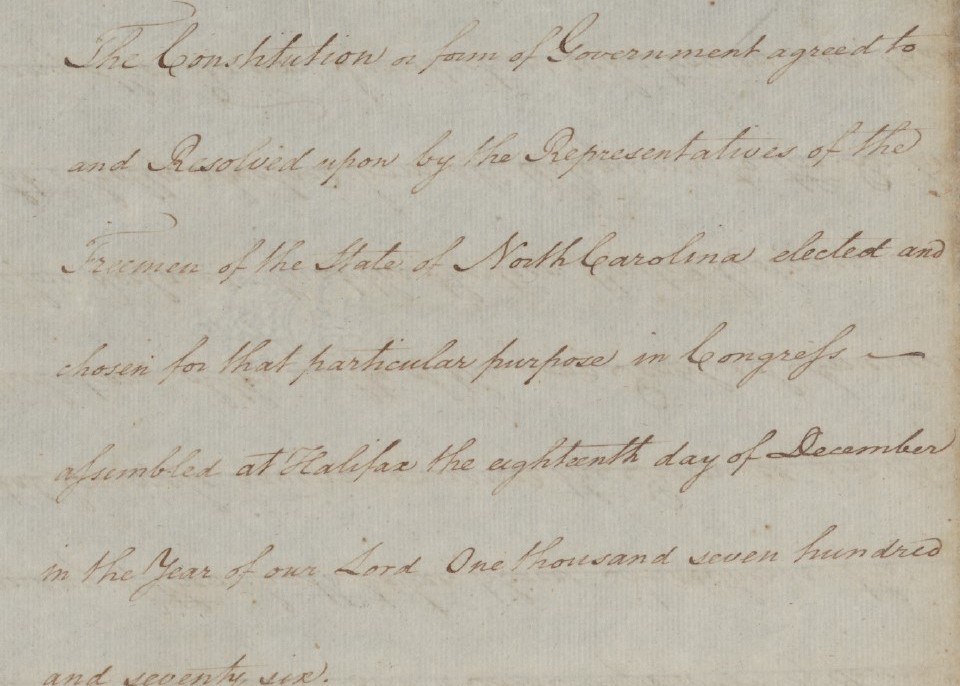 The Constitution or form of Government agreed to
and Resolved upon by the Representatives of the
Freemen of the State of North Carolina elected and
chosen for that particular purpose in Congreſs —
aſsembled at Halifax the eighteenth day of December
in the Year of our Lord One thousand seven hundred
and seventy six.